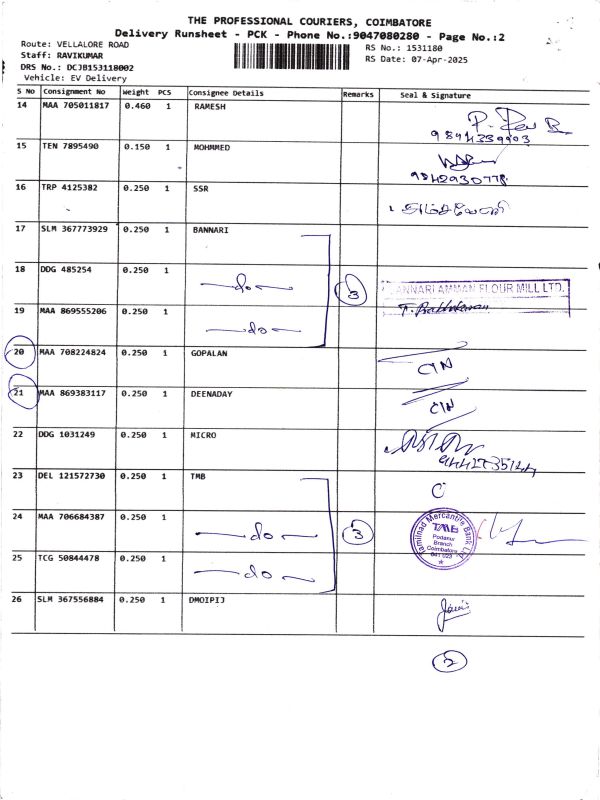 THE PROFESSIONAL COURIERS, COIMBATORE
Delivery Runsheet - PCK - Phone No.:9047080280 - Page No.:2
Route: VELLALORE ROAD
RS No.: 1531180
Staff: RAVIKUMAR
RS Date: 07-Apr-2025
DRS No.: DCJB153118002
Vehicle: EV Delivery
S No Consignment No Weight PCS Consignee Details Remarks Seal & Signature
14 MAA 705011817 0.460 1 RAMESH
15 TEN 7895490 0.150 1 MOHMMED
16 TRP 4125382 0.250 1 SSR
17 SLM 367773929 0.250 1 BANNARI
18 DDG 485254 0.250 1 -do- 3 BANNARI AMMAN FLOUR MILL LTD.
19 MAA 869555206 0.250 1 -do-
20 MAA 708224824 0.250 1 GOPALAN CIN
21 MAA 869383117 0.250 1 DEENADAY CIN
22 DDG 1031249 0.250 1 MICRO
23 DEL 121572730 0.250 1 TMB
24 MAA 706684387 0.250 1 -do- 3 Tamilnad Mercantile Bank Ltd. TMB Podanur Branch Coimbatore 641 023
25 TCG 50844478 0.250 1 -do-
26 SLM 367556884 0.250 1 DMOIPIJ
2